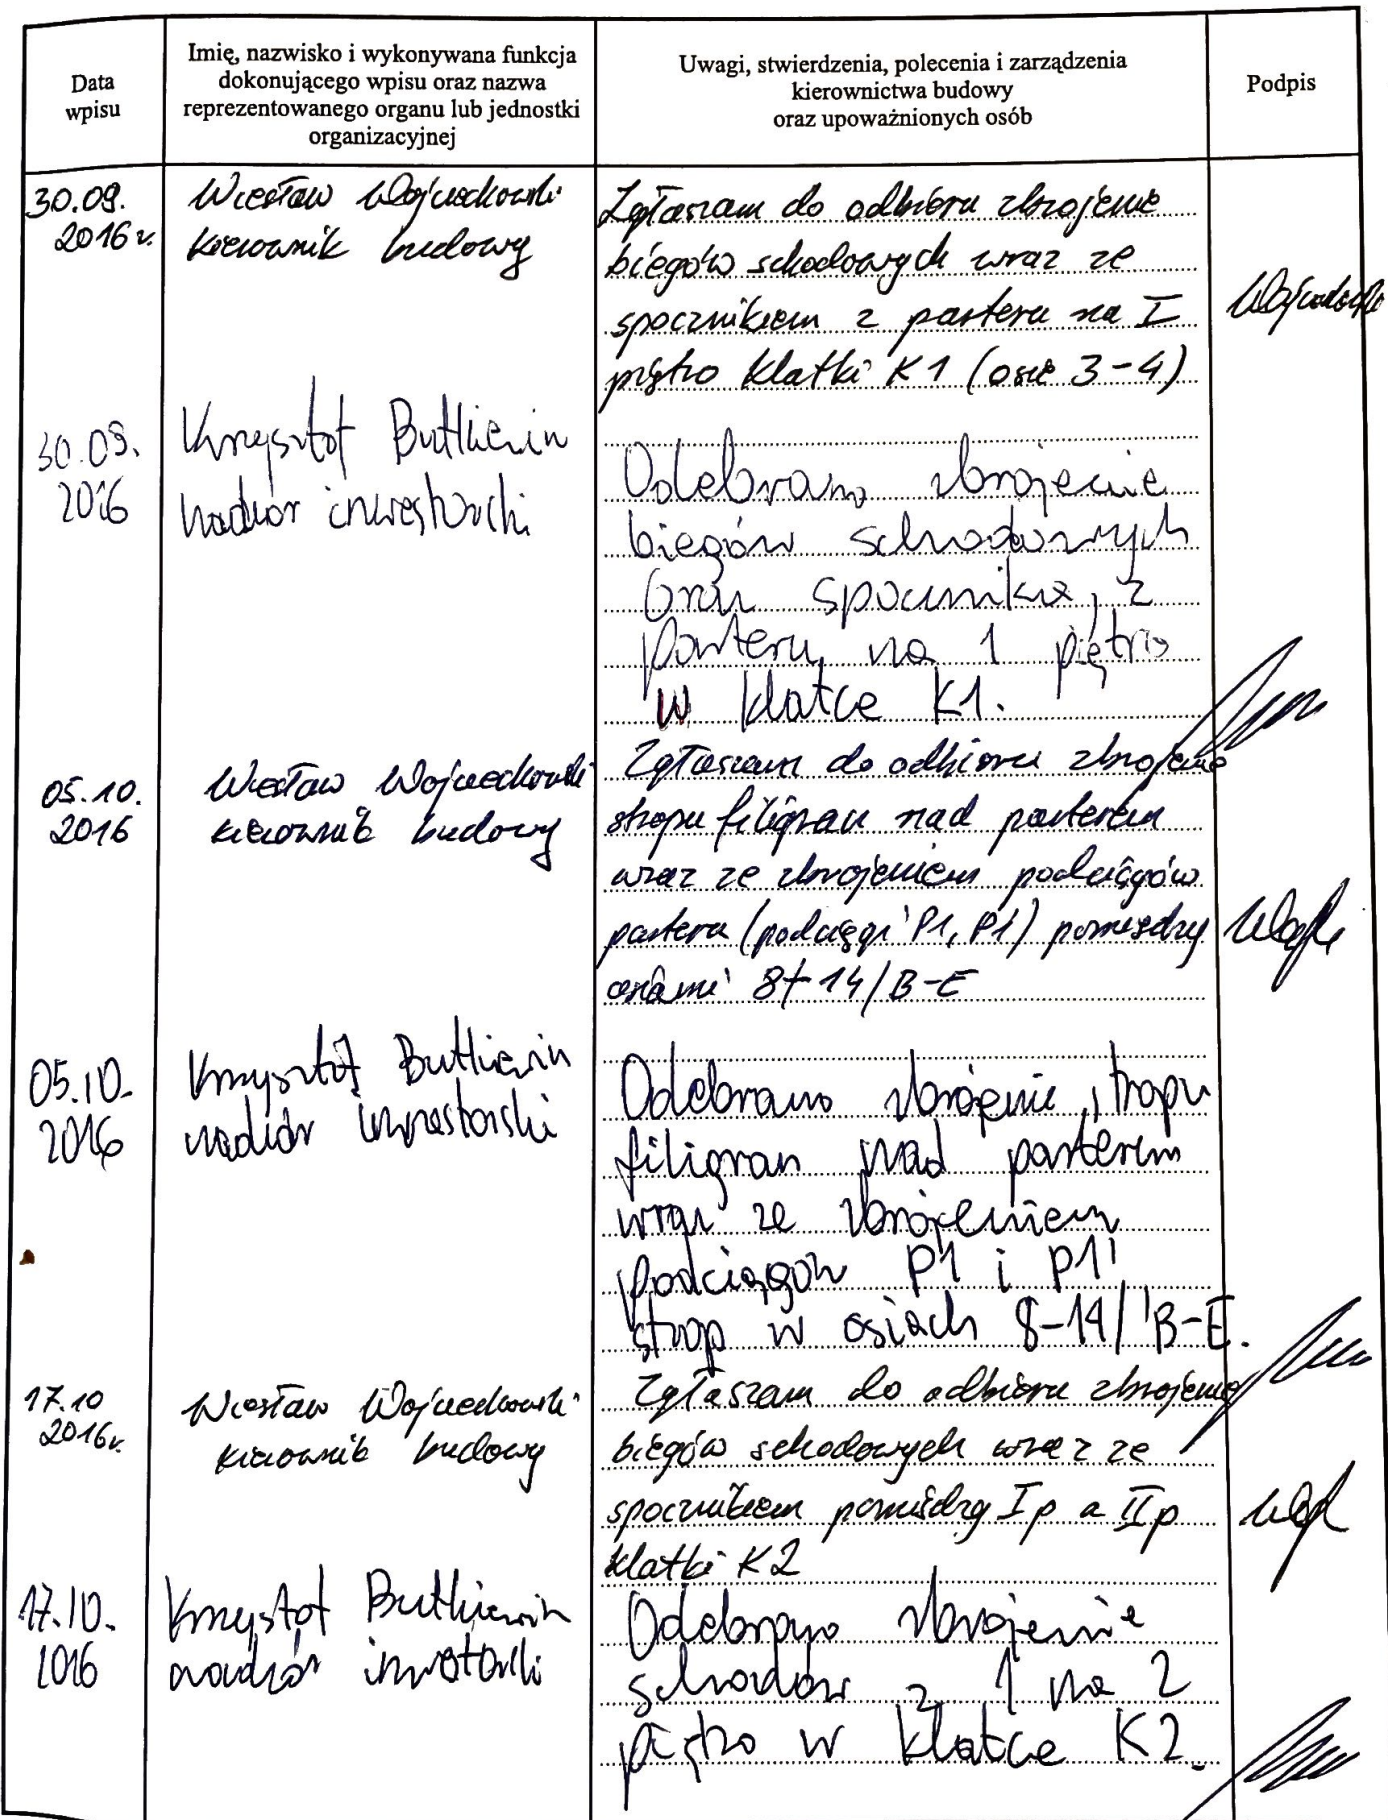 Data
wpisu
Imię, nazwisko i wykonywana funkcja
dokonującego wpisu oraz nazwa
reprezentowanego organu lub jednostki
organizacyjnej
Uwagi, stwierdzenia, polecenia i zarządzenia
kierownictwa budowy
oraz upoważnionych osób
Podpis
30.09.
2016 r.
Wiesław Wojciechowski
kierownik budowy
Zgłaszam do odbioru zbrojenie
biegów schodowych wraz ze
spocznikiem z parteru na I
piętro klatki K1 (osie 3-4)
30.09.
2016
Krzysztof Butkiewicz
nadzór inwestorski
Odebrano zbrojenie
biegów schodowych
oraz spocznika, z
parteru na 1 piętro
w klatce K1.
05.10.
2016
Wiesław Wojciechowski
kierownik budowy
Zgłaszam do odbioru zbrojenie
stropu filigran nad parterem
wraz ze zbrojeniem podciągów
parteru (podciągi P1, P1') pomiędzy
osiami 8÷14/B-E
05.10.
2016
Krzysztof Butkiewicz
nadzór inwestorski
Odebrano zbrojenie stropu
filigran nad parterem
wraz ze zbrojeniem
podciągów P1 i P1'
strop w osiach 8-14/B-E.
17.10
2016r.
Wiesław Wojciechowski
kierownik budowy
Zgłaszam do odbioru zbrojenie
biegów schodowych wraz ze
spocznikiem pomiędzy Ip a IIp
klatki K2
17.10.
2016
Krzysztof Butkiewicz
nadzór inwestorski
Odebrano zbrojenie
schodów z 1 na 2
piętro w klatce K2.